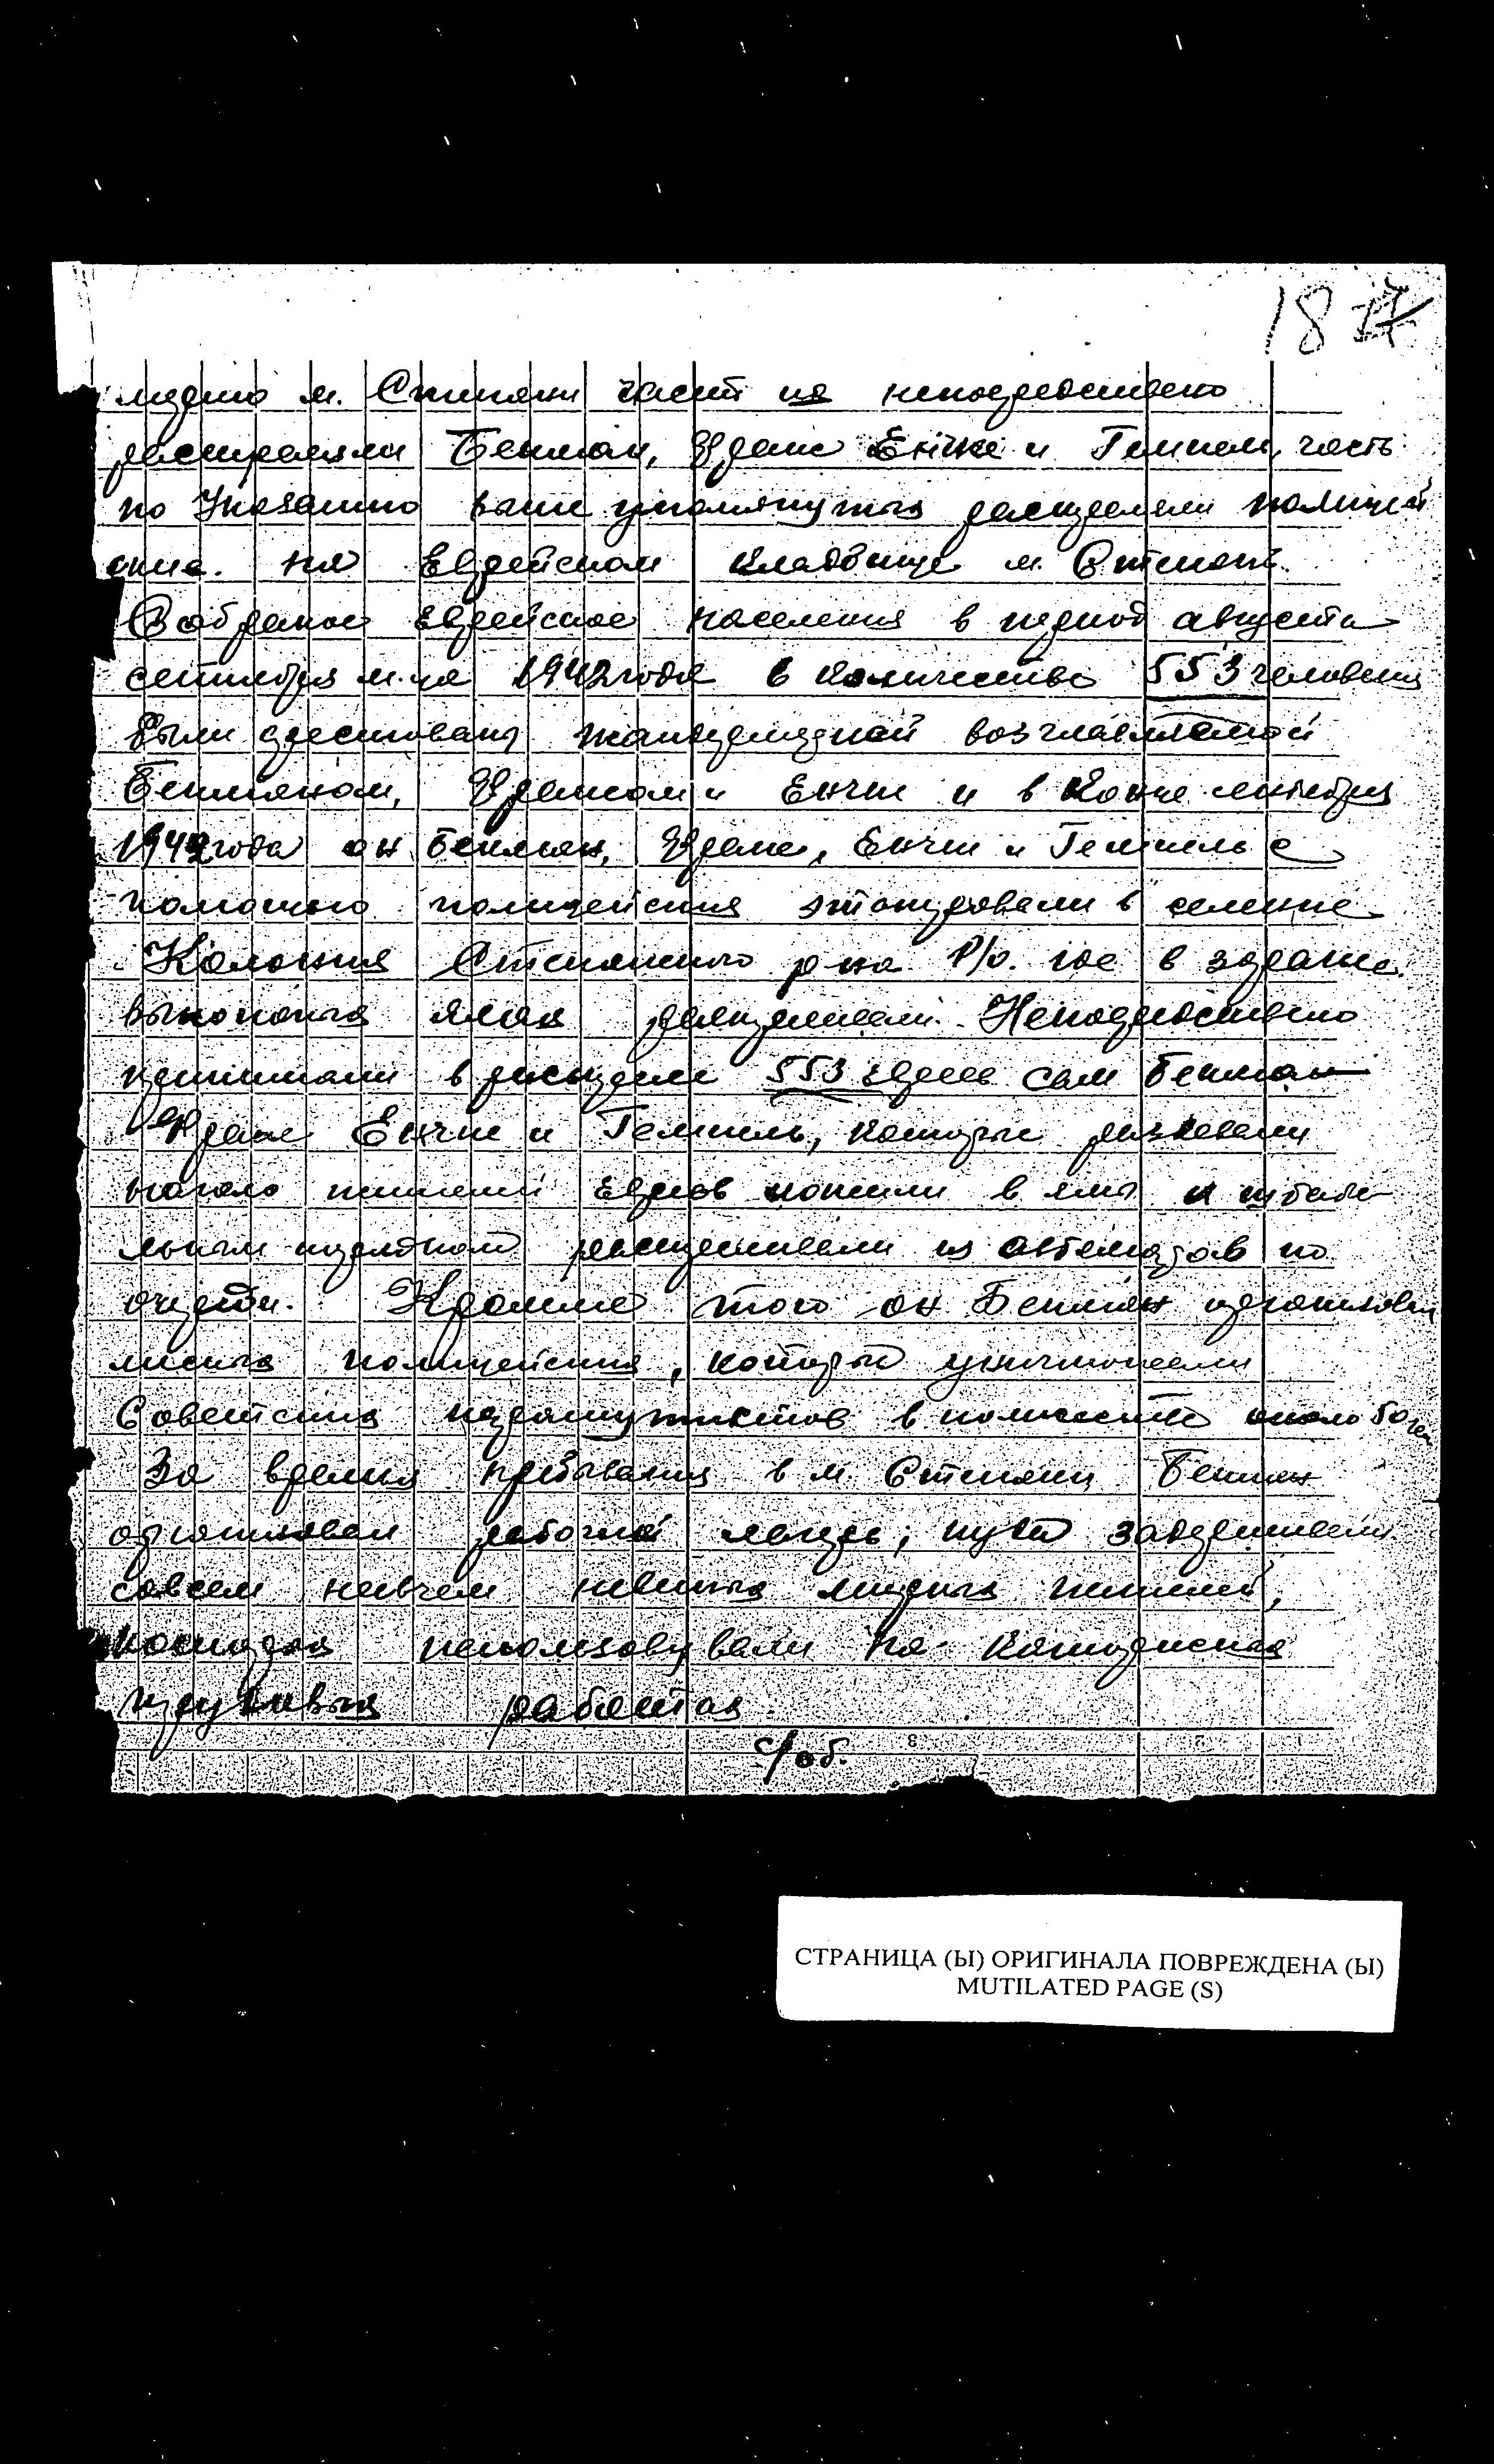 18
м. Степани часть непосредственно
расстреляли Бекман, Краме Енчке и Гемпель, часть
по Указанию выше упомянутых расстреляли полицей
ские. на Еврейском кладбище м. Степань.
Собраное Еврейское населения в период августа
сентября м-ца 1942 года в количестве 553 человека
были арестованы жандармерией возглавляемой
Бекманом, и Енчке и в конце сентября
1942 года он Бекман, Енчке и Гемпель с
помощью полицейских этапировали в селение
Колония Степанского р-на Р/о. где в зарание
выкопаных ямах расстреливали. Непосредственно
принимали в расстреле 553 евреев сам Бекман
Енчке и Гемпель, которые раздевали
наголо партией Евреев ложили в ямы и
порядком расстреливали из автоматов по
очереди. Кромме того он Бекман организовал
полицейских, которые уничтожали
Советских в количестве около 60 чел
За время пребывания в м. Степани Бекман
организовал рабочий лагерь, путем задерживания
совсем невчем невиных мирных жителей,
которых использовували на каторжных
работах
с/об.
СТРАНИЦА (Ы) ОРИГИНАЛА ПОВРЕЖДЕНА (Ы)
MUTILATED PAGE (S)